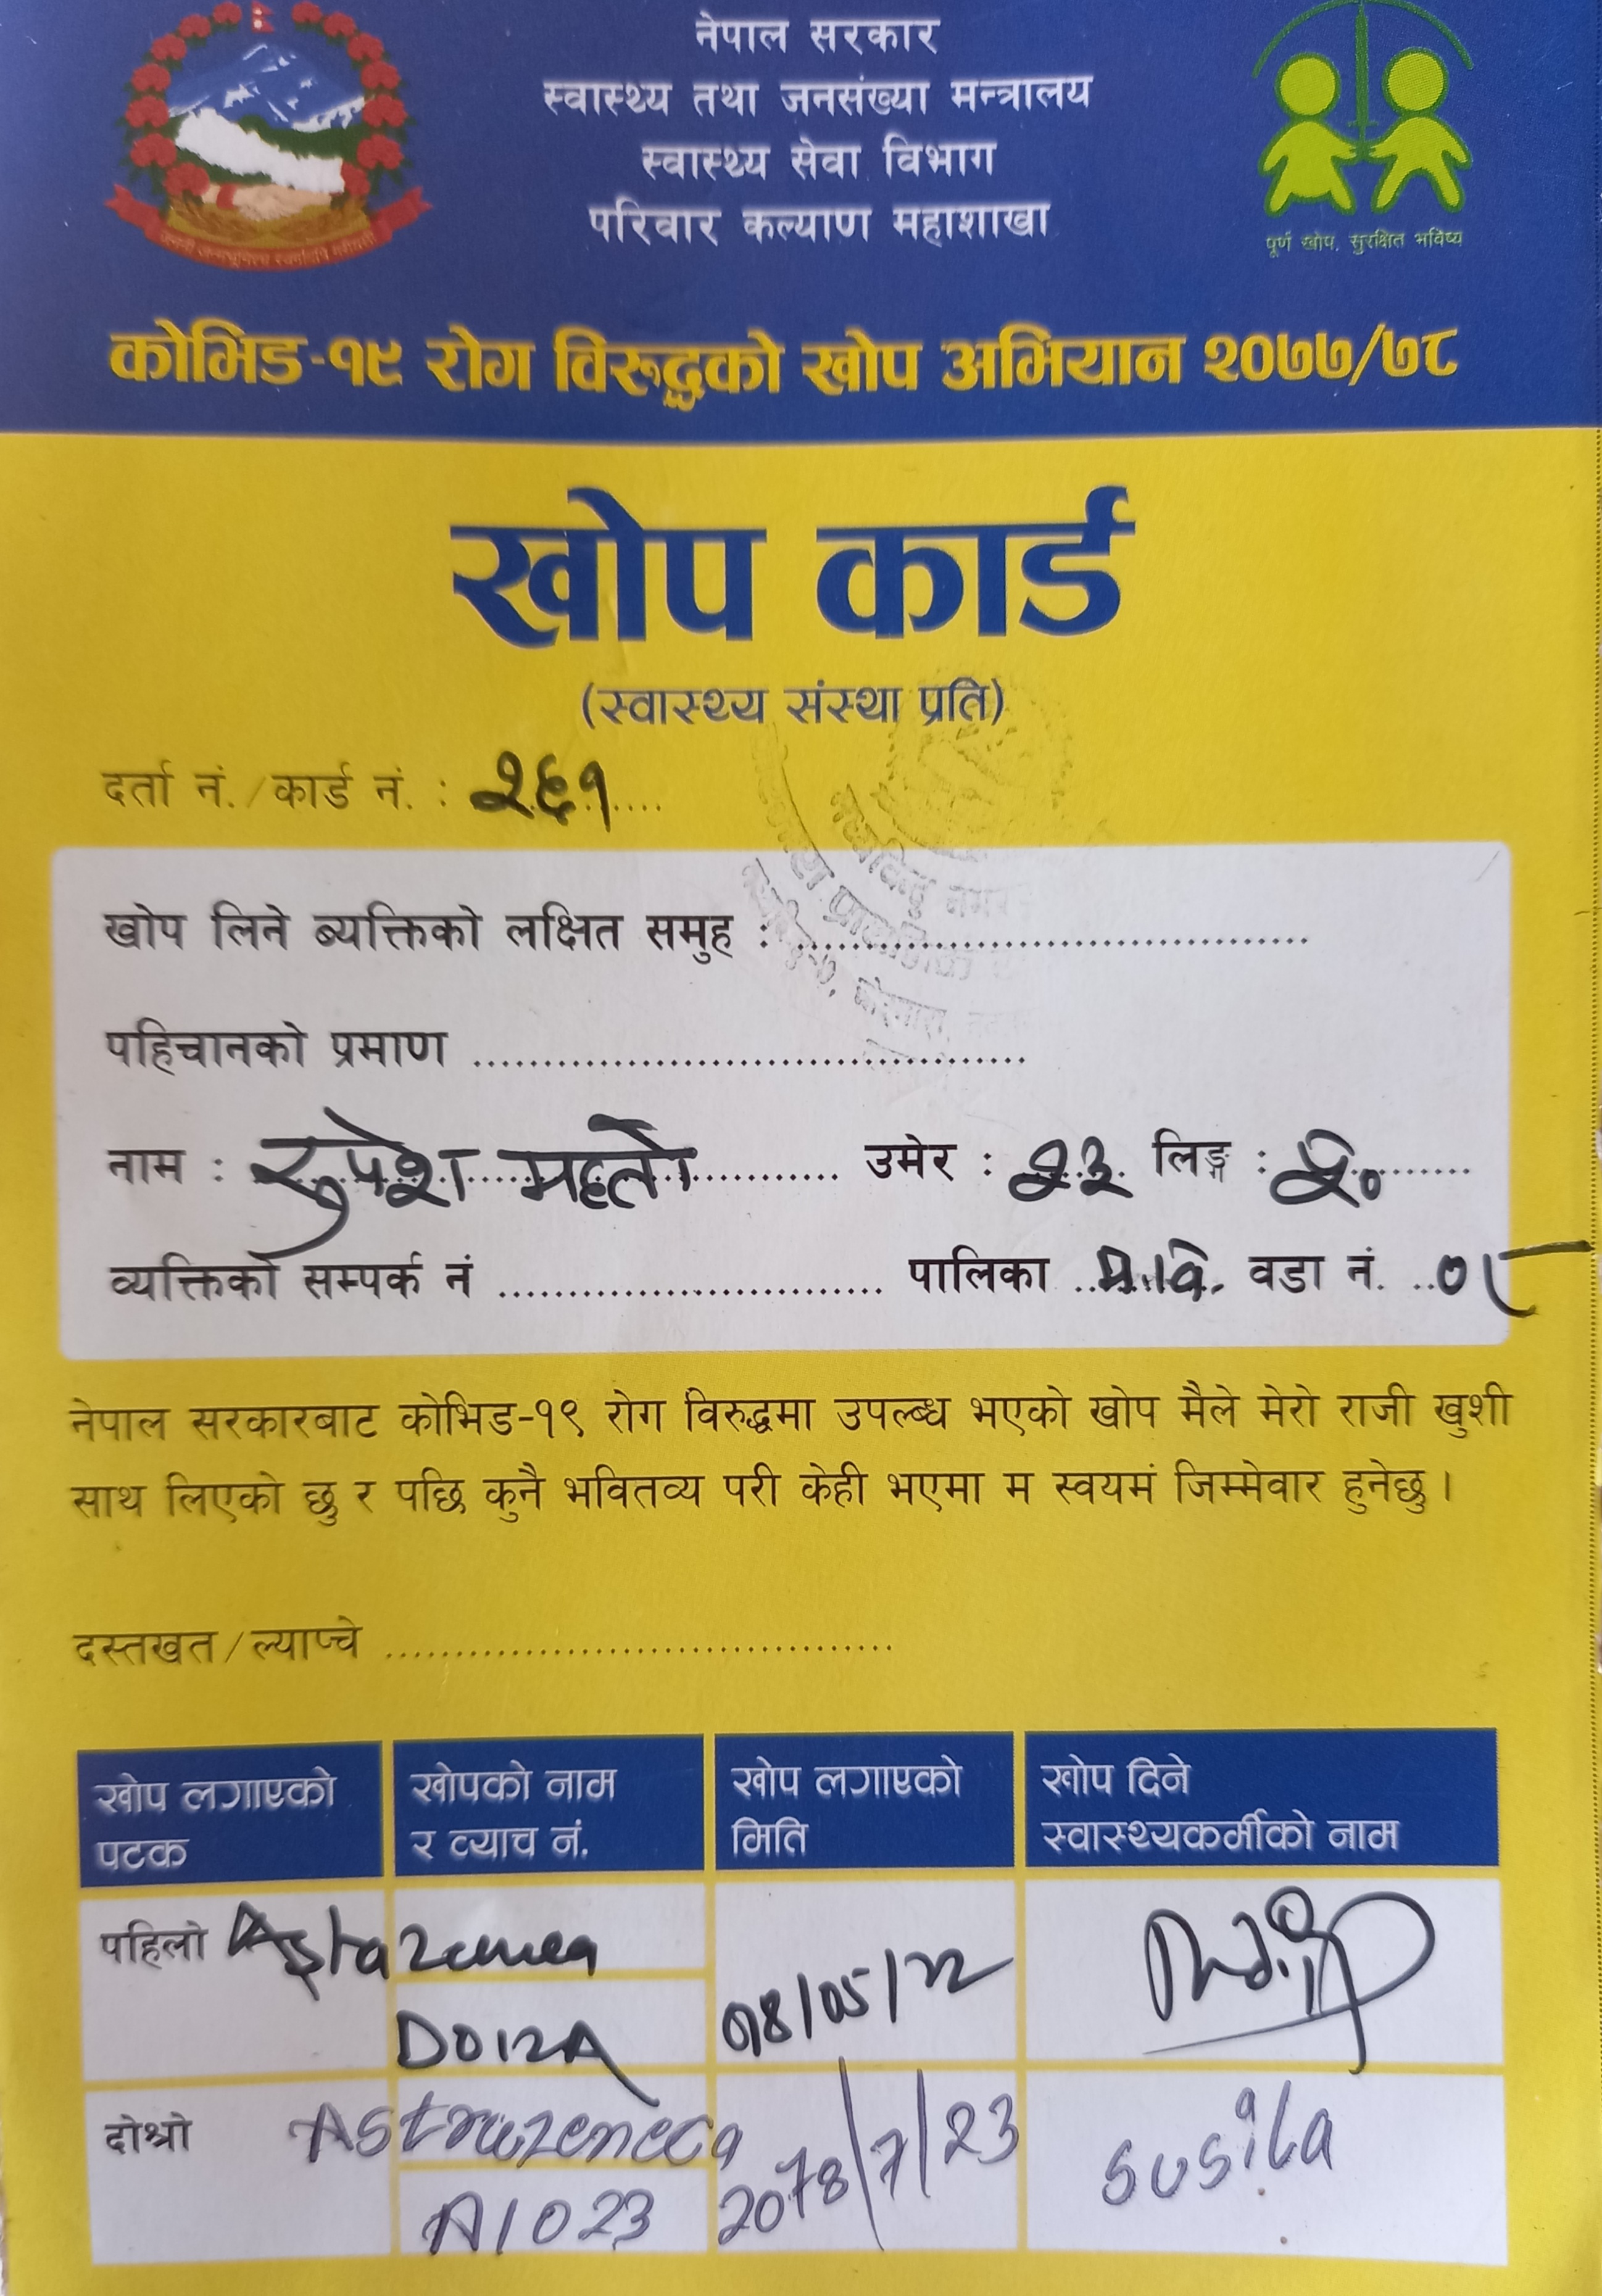 नेपाल सरकार
स्वास्थ्य तथा जनसंख्या मन्त्रालय
स्वास्थ्य सेवा विभाग
परिवार कल्याण महाशाखा
पूर्ण खोप, सुरक्षित भविष्य
कोभिड-१९ रोग विरुद्धको खोप अभियान २०७७/७८
खोप कार्ड
(स्वास्थ्य संस्था प्रति)
दर्ता नं./कार्ड नं. : २६१
खोप लिने ब्यक्तिको लक्षित समुह :
पहिचानको प्रमाण
नाम : रुपेश महतो उमेर : २३ लिङ्ग :
व्यक्तिको सम्पर्क नं पालिका म.वि. वडा नं. ०८
नेपाल सरकारबाट कोभिड-१९ रोग विरुद्धमा उपल्ब्ध भएको खोप मैले मेरो राजी खुशी
साथ लिएको छु र पछि कुनै भवितव्य परी केही भएमा म स्वयमं जिम्मेवार हुनेछु ।
दस्तखत/ल्याप्चे
खोप लगाएको पटक
खोपको नाम र व्याच नं.
खोप लगाएको मिति
खोप दिने स्वास्थ्यकर्मीको नाम
पहिलो
दोश्रो Astrazeneca 2078/7/23 susila
A1023